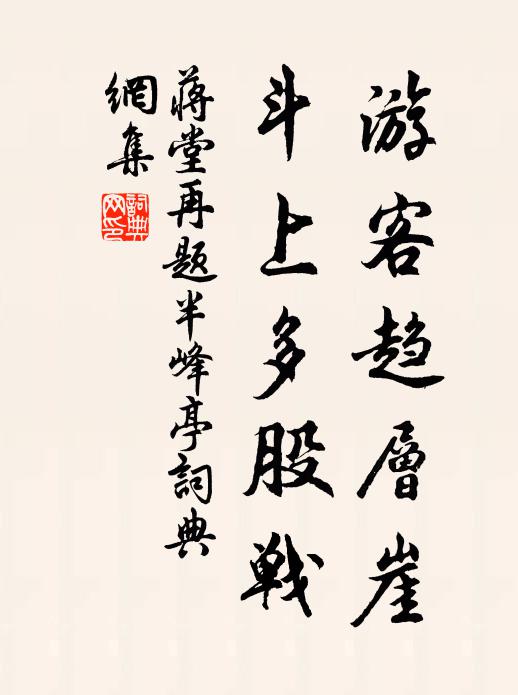 游客趋層崖
斗上多股戦
蒋堂再题半峰亭詞典
網集
詞典
网印